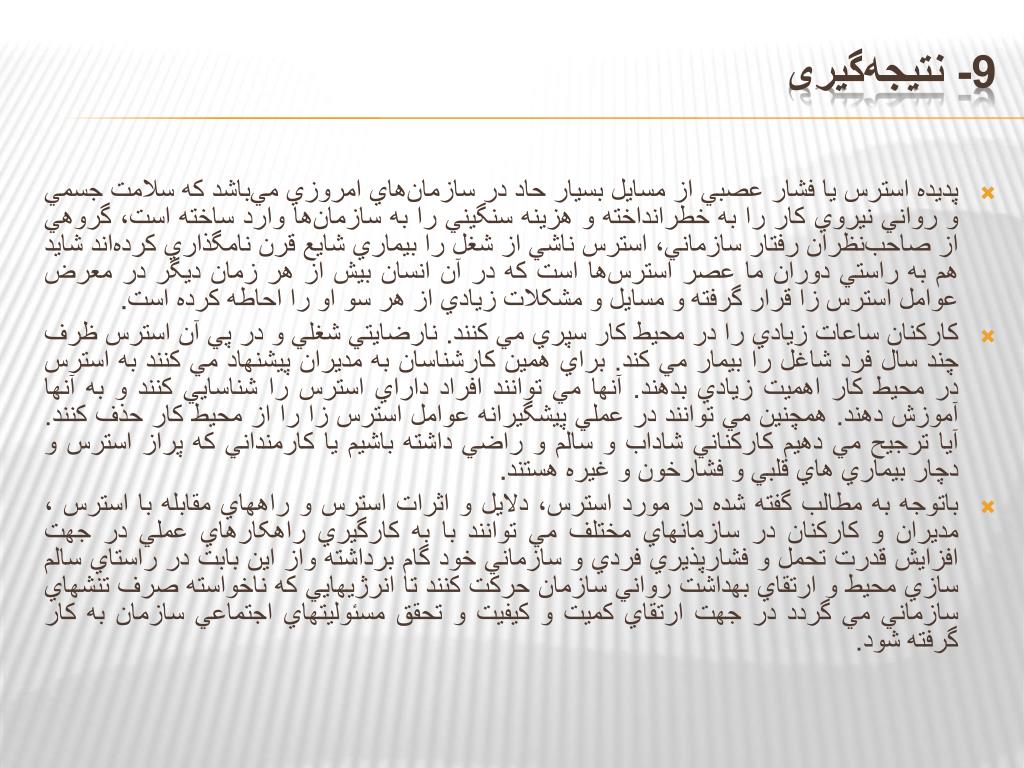 9- نتیجه‌گیری
پديده استرس يا فشار عصبي از مسايل بسيار حاد در سازمان‌هاي امروزي مي‌باشد كه سلامت جسمي
و رواني نيروي كار را به خطرانداخته و هزينه سنگيني را به سازمان‌ها وارد ساخته است، گروهي
از صاحب‌نظران رفتار سازماني، استرس ناشي از شغل را بيماري شايع قرن نامگذاري كرده‌اند شايد
هم به راستي دوران ما عصر استرس‌ها است كه در آن انسان بيش از هر زمان ديگر در معرض
عوامل استرس زا قرار گرفته و مسايل و مشكلات زيادي از هر سو او را احاطه كرده است.
كاركنان ساعات زيادي را در محيط كار سپري مي كنند. نارضايتي شغلي و در پي آن استرس ظرف
چند سال فرد شاغل را بيمار مي كند. براي همين كارشناسان به مديران پيشنهاد مي كنند به استرس
در محيط كار اهميت زيادي بدهند. آنها مي توانند افراد داراي استرس را شناسايي كنند و به آنها
آموزش دهند. همچنين مي توانند در عملي پيشگيرانه عوامل استرس زا را از محيط كار حذف كنند.
آيا ترجيح مي دهيم كاركناني شاداب و سالم و راضي داشته باشيم يا كارمنداني كه پراز استرس و
دچار بيماري هاي قلبي و فشارخون و غيره هستند.
باتوجه به مطالب گفته شده در مورد استرس، دلايل و اثرات استرس و راههاي مقابله با استرس ،
مديران و كاركنان در سازمانهاي مختلف مي توانند با به كارگيري راهكارهاي عملي در جهت
افزايش قدرت تحمل و فشارپذيري فردي و سازماني خود گام برداشته واز اين بابت در راستاي سالم
سازي محيط و ارتقاي بهداشت رواني سازمان حركت كنند تا انرژيهايي كه ناخواسته صرف تنشهاي
سازماني مي گردد در جهت ارتقاي كميت و كيفيت و تحقق مسئوليتهاي اجتماعي سازمان به كار
گرفته شود.